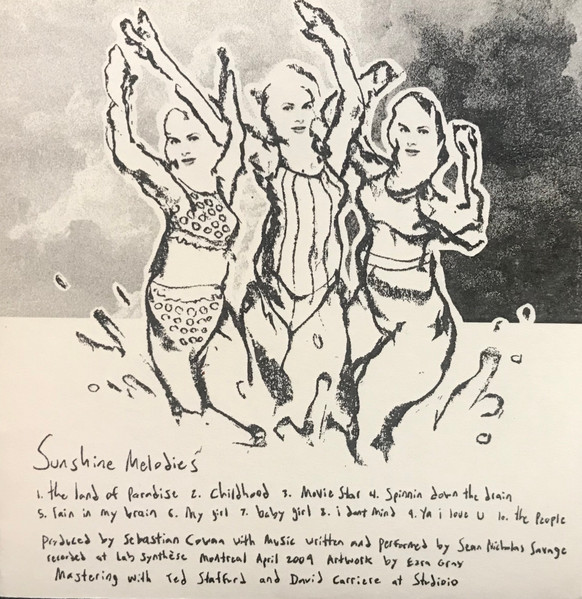 Sunshine Melodies
1. the land of Paradise 2. Childhood 3. Movie Star 4. Spinnin down the drain
5. rain in my brain 6. My girl 7. baby girl 8. i dont mind 9. Ya i love U 10. the People
Produced by Sebastian Cowan with Music written and performed by Sean Nicholas Savage
recorded at Lab Synthèse Montreal April 2009 Artwork by Ezra Gray
Mastering with Ted Stafford and David Carriere at Studioio